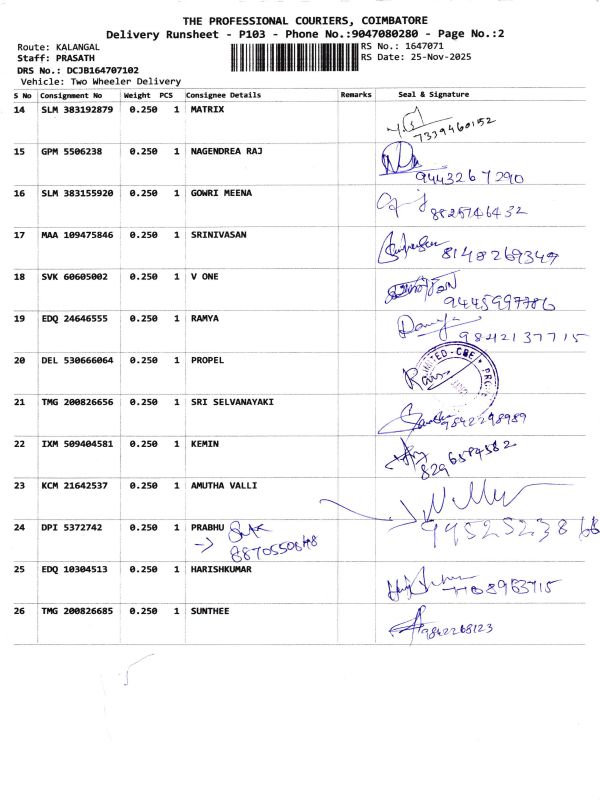 THE PROFESSIONAL COURIERS, COIMBATORE
Delivery Runsheet - P103 - Phone No.:9047080280 - Page No.:2
Route: KALANGAL
RS No.: 1647071
Staff: PRASATH
RS Date: 25-Nov-2025
DRS No.: DCJB164707102
Vehicle: Two Wheeler Delivery
S No Consignment No Weight PCS Consignee Details Remarks Seal & Signature
14 SLM 383192879 0.250 1 MATRIX
7339460152
15 GPM 5506238 0.250 1 NAGENDREA RAJ
9443267290
16 SLM 383155920 0.250 1 GOWRI MEENA
8825746432
17 MAA 109475846 0.250 1 SRINIVASAN
8148269349
18 SVK 60605002 0.250 1 V ONE
9445997786
19 EDQ 24646555 0.250 1 RAMYA
9842137715
20 DEL 530666064 0.250 1 PROPEL
21 TMG 200826656 0.250 1 SRI SELVANAYAKI
9842298989
22 IXM 509404581 0.250 1 KEMIN
8296584582
23 KCM 21642537 0.250 1 AMUTHA VALLI
24 DPI 5372742 0.250 1 PRABHU
9952523868
25 EDQ 10304513 0.250 1 HARISHKUMAR
26 TMG 200826685 0.250 1 SUNTHEE
9842268123